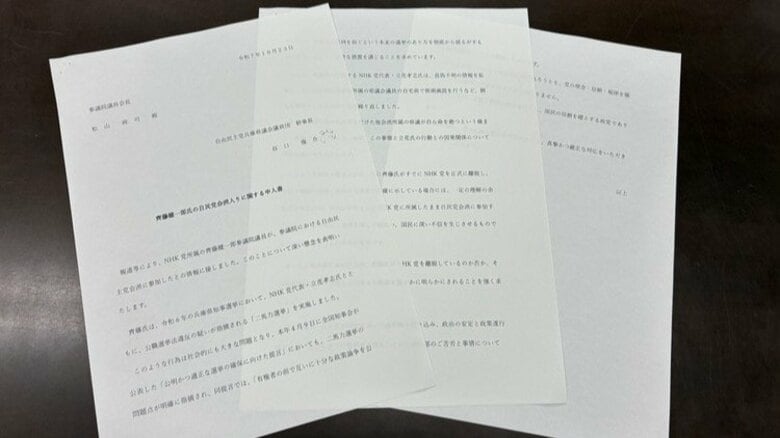 令和７年１０月２３日
参議院議員会長
松山政司様
自由民主党兵庫県議会議員団 幹事長
谷口俊介
齊藤健一郎氏の自民党会派入りに関する申入書
報道等により、NHK党所属の齊藤健一郎参議院議員が、参議院における自由民
主党会派に参加したとの情報に接しました。このことについて深い懸念を表明い
たします。
齊藤氏は、令和６年の兵庫県知事選挙において、NHK党代表・立花孝志氏とと
もに、公職選挙法違反の疑いが指摘される「二馬力選挙」を実施しました。
このような行為は社会的にも大きな問題となり、本年４月９日に全国知事会が
公表した「公明かつ適正な選挙の確保に向けた提言」においても、二馬力選挙の
問題点が明確に指摘され、同提言では、「有権者の前で互いに十分な政策論争を公
を損ぐという本来の選挙のあり方を根底から揺るがする
な措置を講じることを求めています。
けるNHK党代表・立花孝志氏は、真偽不明の情報を拡
所属の県議会議員の自宅前で街頭演説を行うなど、個
繰り返しました。
けた他会派所属の県議が自ら命を絶つという痛ま
この事態と立花氏の行動との因果関係について
齊藤氏がすでにNHK党を正式に離脱し、
確に示している場合には、一定の理解の余
K党に所属したまま自民党会派に参加す
、国民に深い不信を生じさせるもので
HK党を離脱しているのか否か、そ
かに明らかにされることを強く求
込み、政治の安定と政策遂行
部のご苦労と事情について
ろうとも、党の理念・信頼・規律を損
りません。
、国民の信頼を礎とする政党であり
、真摯かつ厳正な対応をいただき
以上